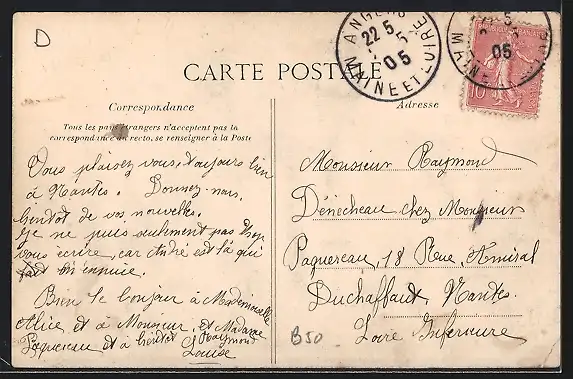 D
ANGERS
22 5
5
05
MAINE ET LOIRE
22 5
5
05
MAINE
REPUBLIQUE FRANÇAISE
10
CARTE POSTALE
Correspondance
Tous les pays étrangers n'acceptent pas la
correspondance au recto, se renseigner à la Poste
Vous plaisez vous, toujours bien
à Nantes. Donnez-nous,
bientôt de vos nouvelles.
Je ne puis seulement pas
vous écrire, car André est là qui
fait m'ennuie.
Bien le bonjour à Mademoiselle
Alice et à Monsieur, et Madame
Paquereau et à bientôt Raymond
Louise
Adresse
Monsieur Raymond
Dénécheau chez Monsieur
Paquereau, 18 Rue, Amiral
Duchaffaut, Nantes.
Loire Inferieure
B50